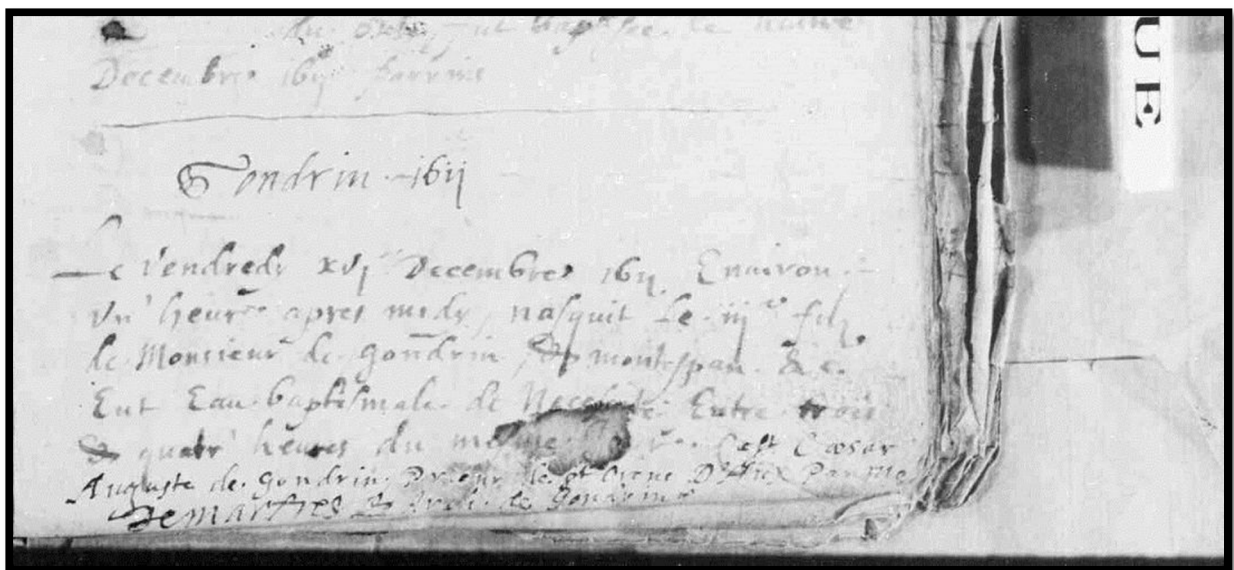 du fut baptisée le
Decembre 1611 parrins
Gondrin 1611
Le Vendredy xvj Decembres 1611 Enuiron
Vn' heure apres midy, nasquit Le iij.e filz
de Monsieur de gondrin & montespan. &c.
Eut Eau baptismale de Necessité Entre trois
& quatr' heures du mesme Cest Cæsar
Auguste de gondrin, Prieur de St Orens D'Aux Par me
& de Gondrin
UE